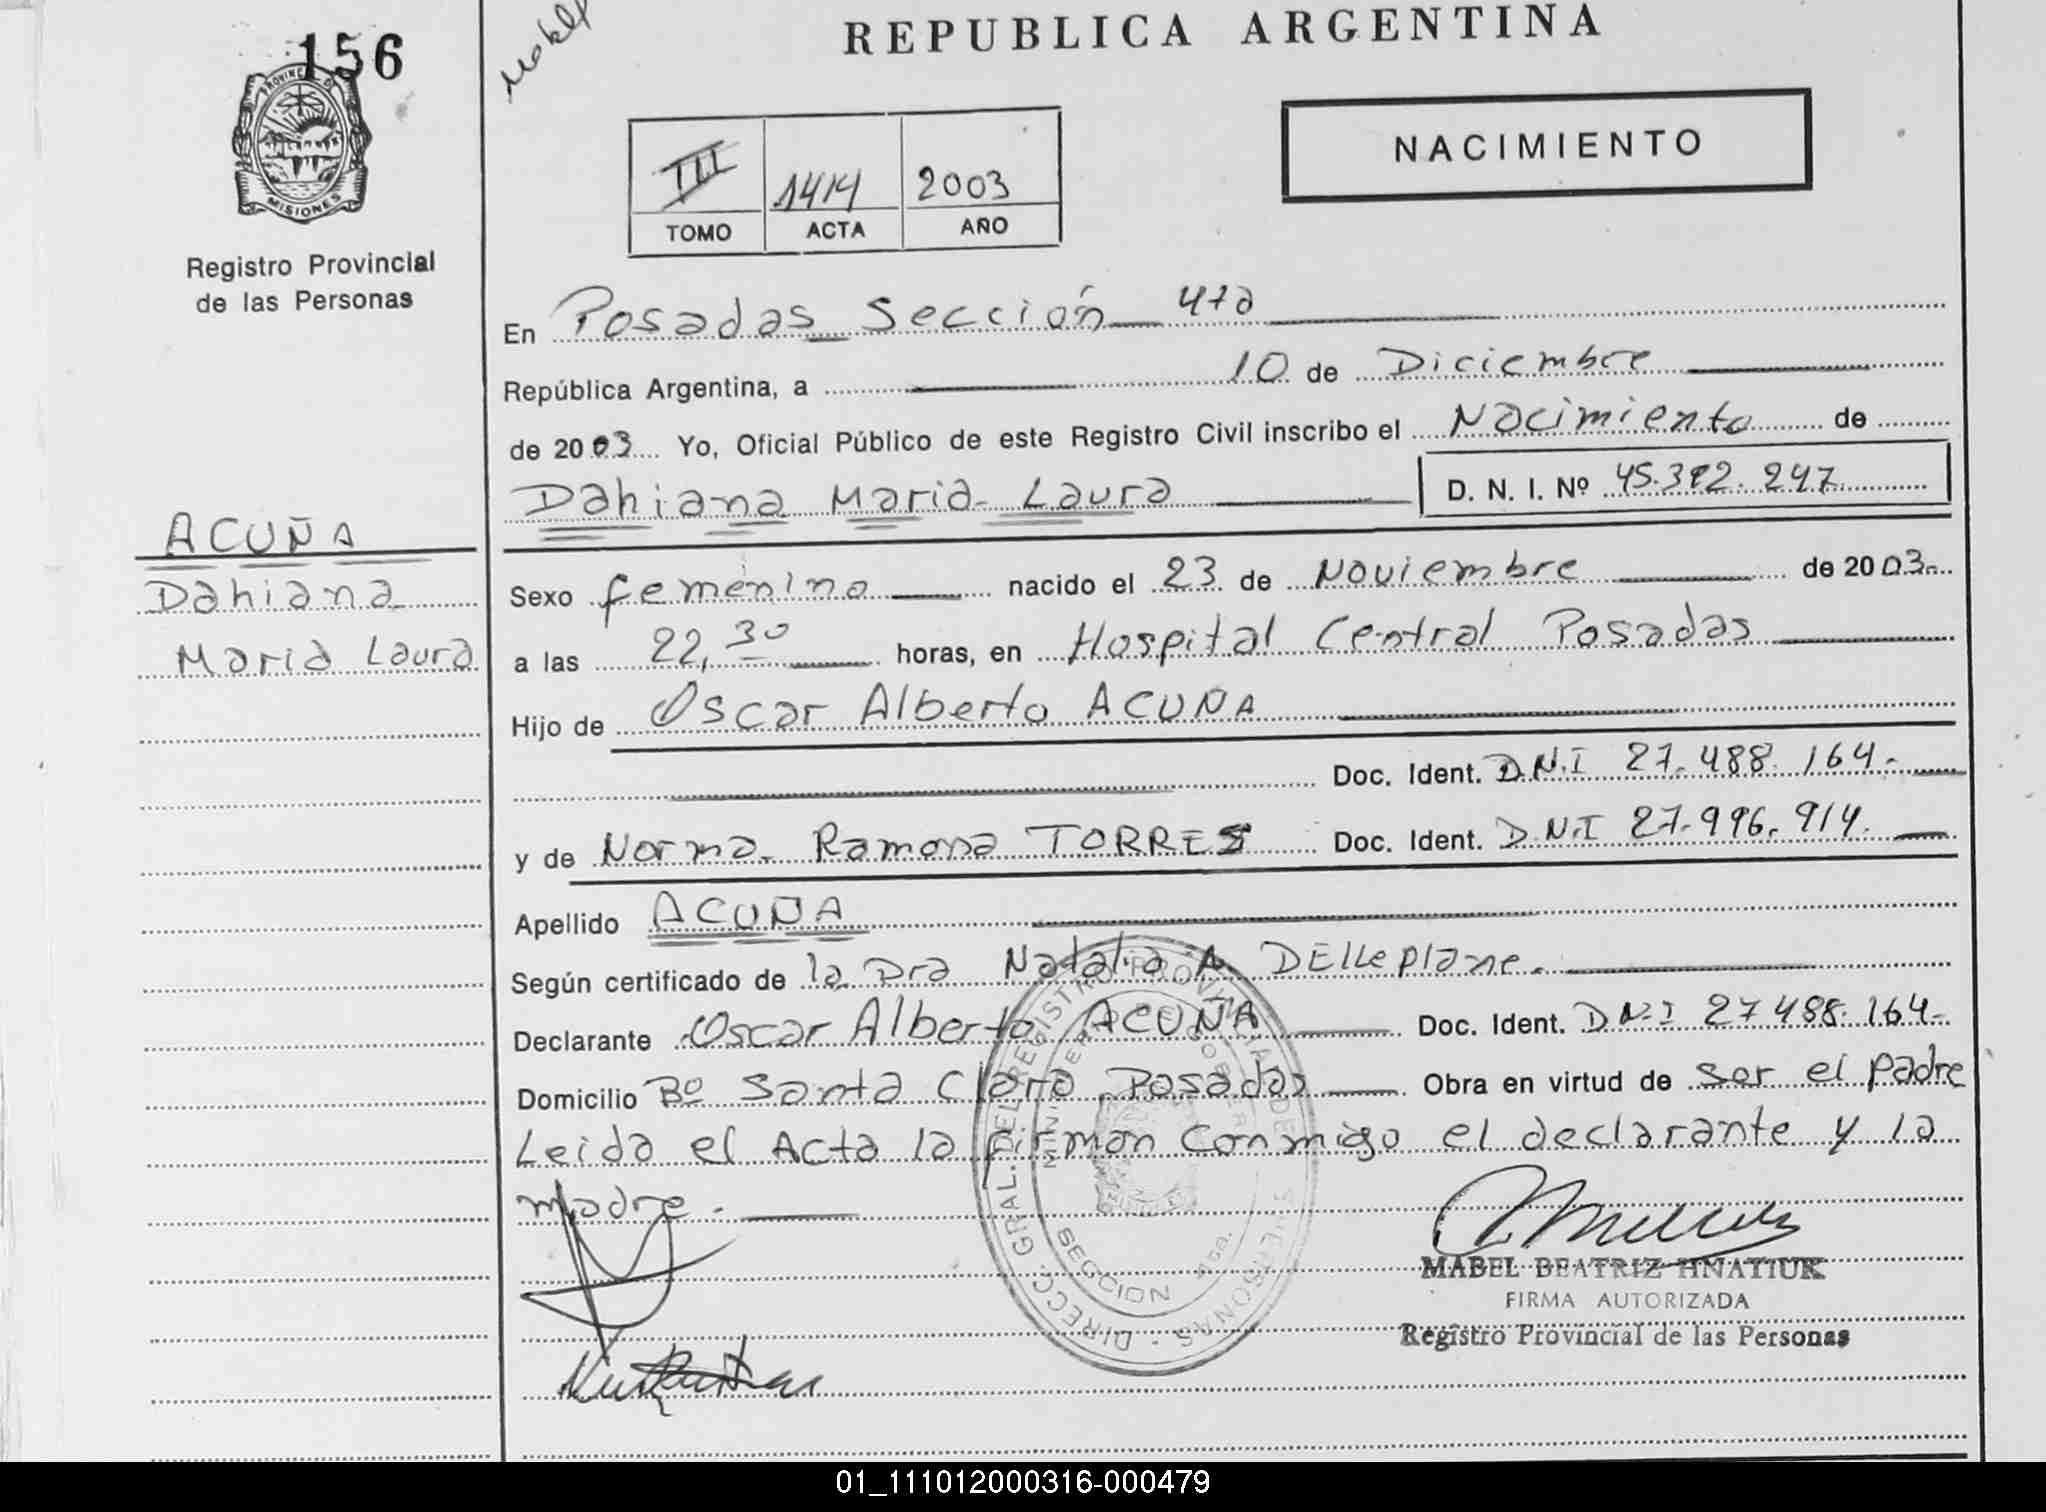 156
PROVINCIA DE
MISIONES
Registro Provincial
de las Personas
REPUBLICA ARGENTINA
NACIMIENTO
III 1414 2003
TOMO ACTA AÑO
En Posadas Sección 4ta
República Argentina, a 10 de Diciembre
de 2003 Yo, Oficial Público de este Registro Civil inscribo el Nacimiento de
Dahiana Maria Laura D. N. I. Nº 45.392.247
ACUÑA
Dahiana
Maria Laura
Sexo femenino nacido el 23 de Noviembre de 2003
a las 22,30 horas, en Hospital Central Posadas
Hijo de Oscar Alberto ACUÑA
Doc. Ident. D.N.I 27.488.164.-
y de Norma Ramona TORRES Doc. Ident. D.N.I 27.996.914.
Apellido ACUÑA
Según certificado de la Dra Natalia A. DELLEPIANE.
Declarante Oscar Alberto ACUÑA Doc. Ident. D.N.I 27.488.164.-
Domicilio Bº Santa Clara Posadas Obra en virtud de ser el padre
Leida el Acta la firman conmigo el declarante y la
Madre.
DIRECC. GRAL. DEL REGISTRO PROVINCIAL DE LAS PERSONAS
SECCION 4ta.
MABEL BEATRIZ HNATIUK
FIRMA AUTORIZADA
Registro Provincial de las Personas
01_111012000316-000479